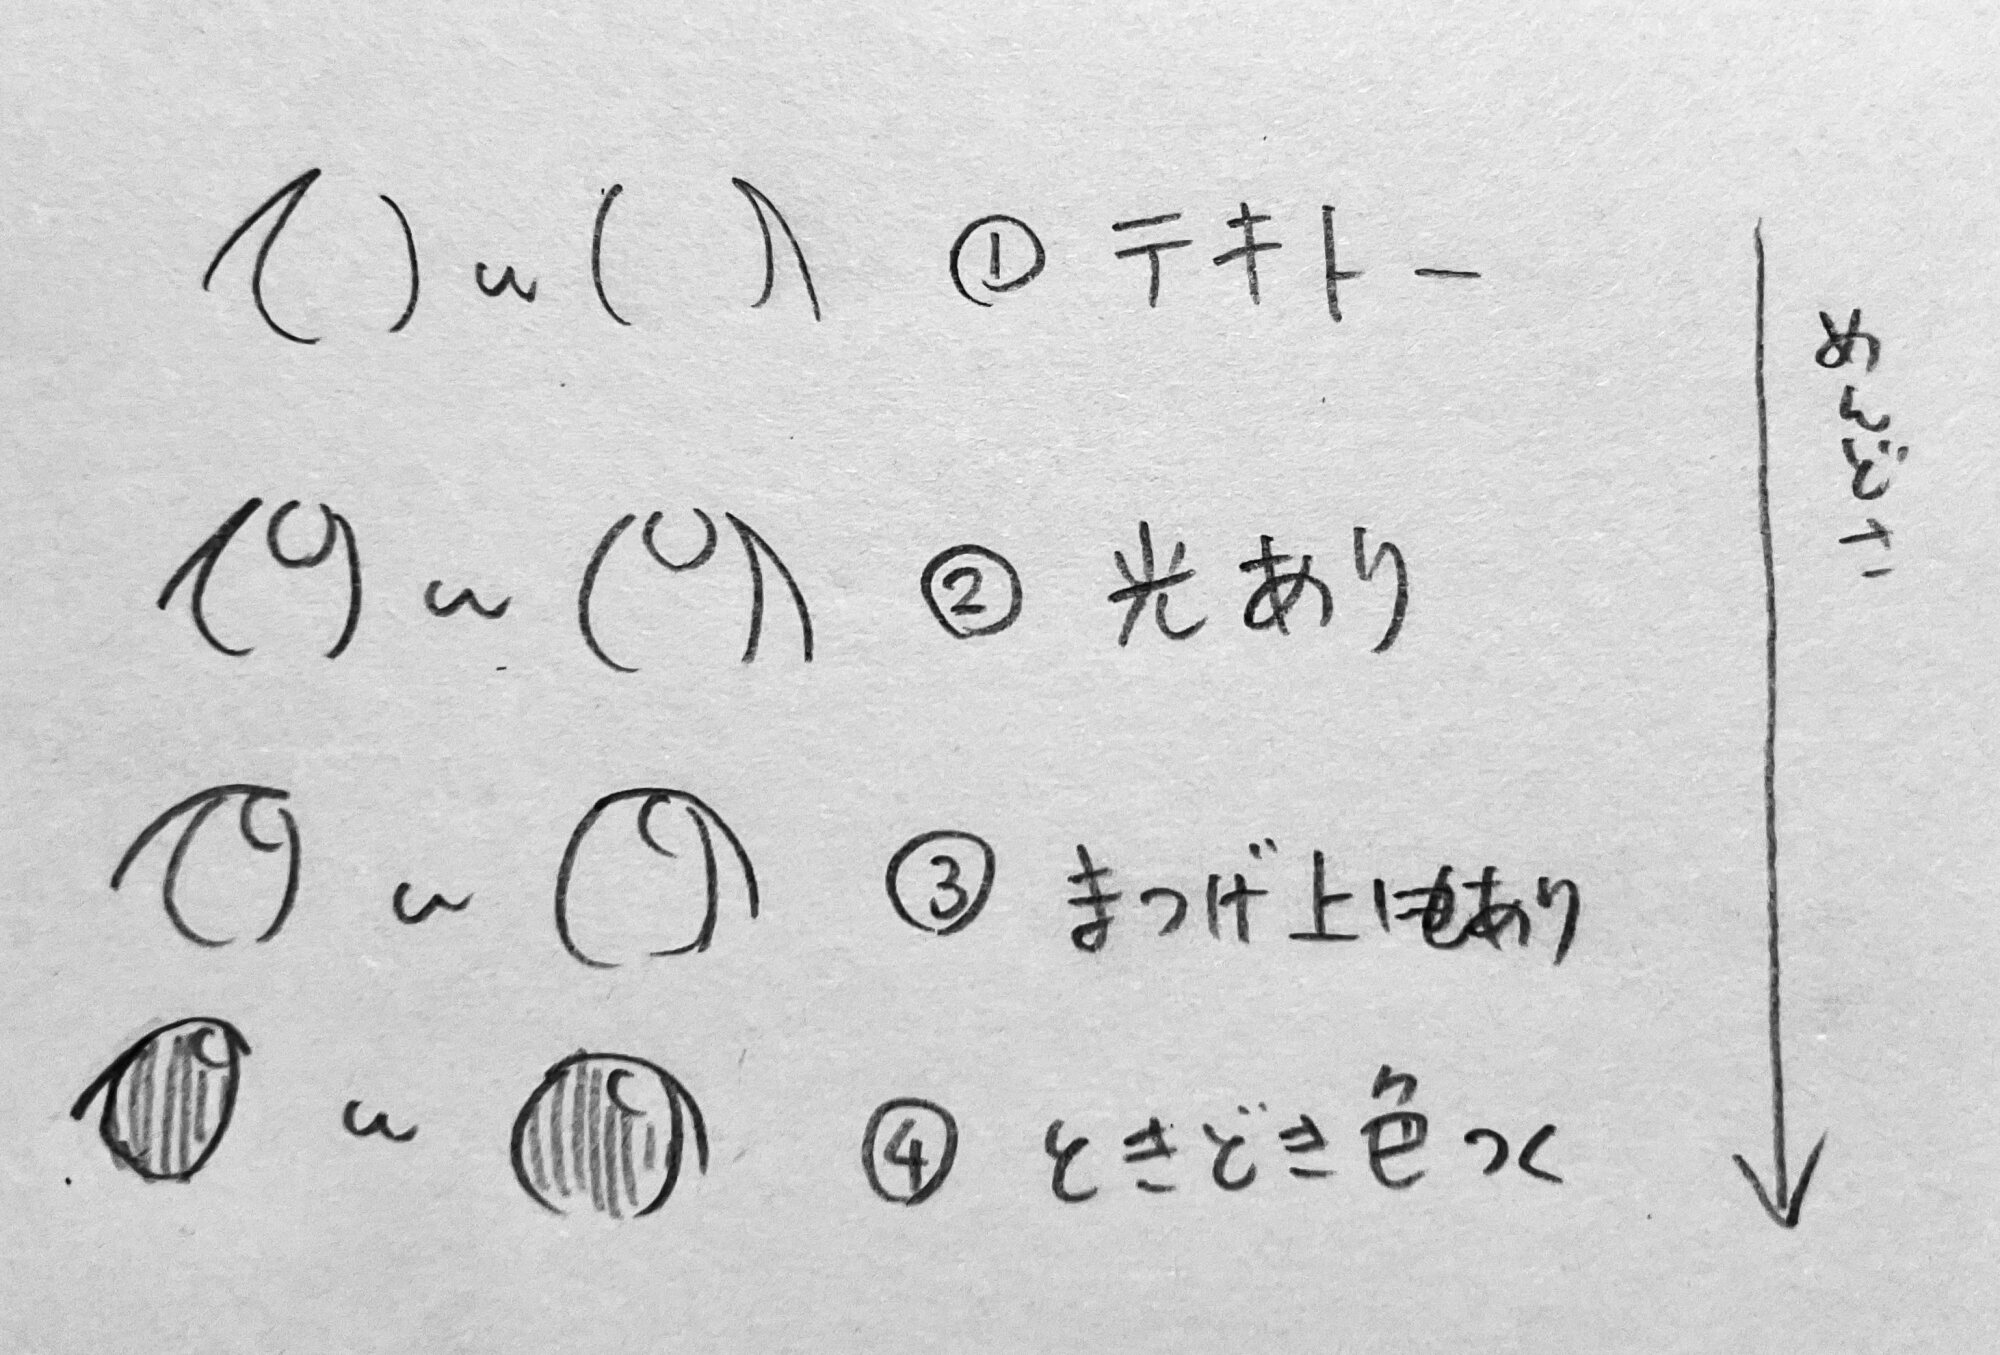 ① テキトー
② 光あり
③ まつげ上にもあり
④ ときどき色つく
めんどさ